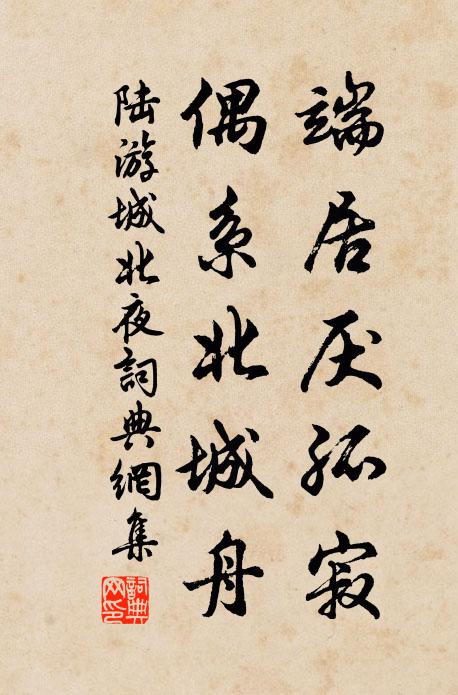 端居厌孤寂
偶系北城舟
陆游城北夜詞典網集
詞典
网印